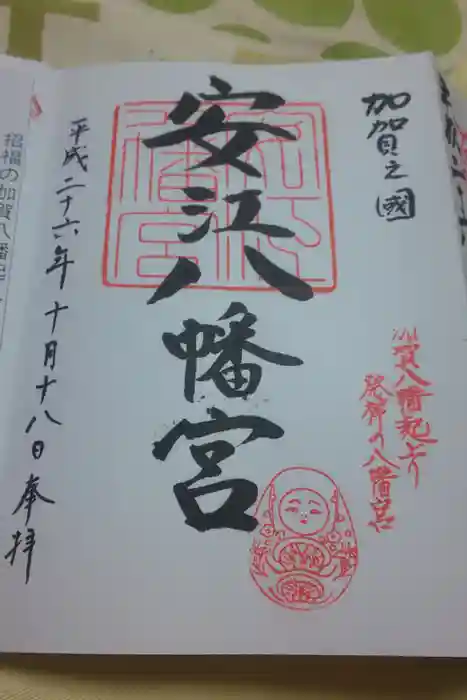 加賀之國
加賀八幡起上り
発祥の八幡宮
安江八幡宮
平成二十六年十月十八日奉拝
招福の加賀八幡